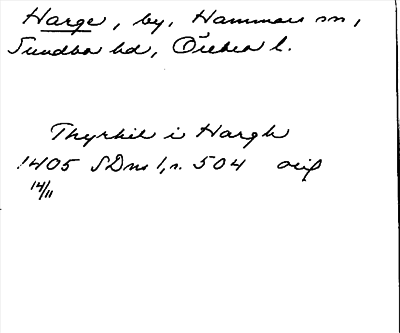 Harge, by, Hammars sn,
Sundbo hd, Örebro l.
Thyrkil i Hargh
1405 SDns 1, s. 504 orig
14/11